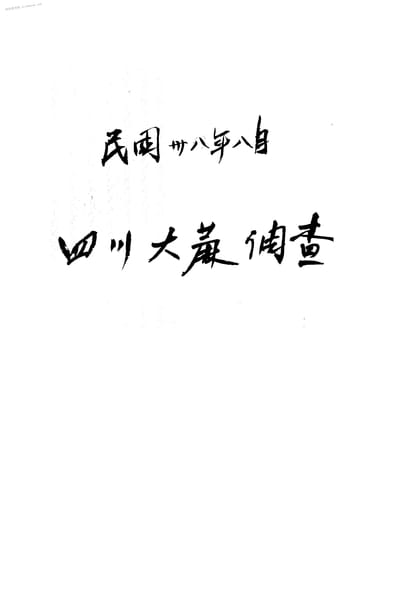 民国卅八年八月
四川大蔴调查